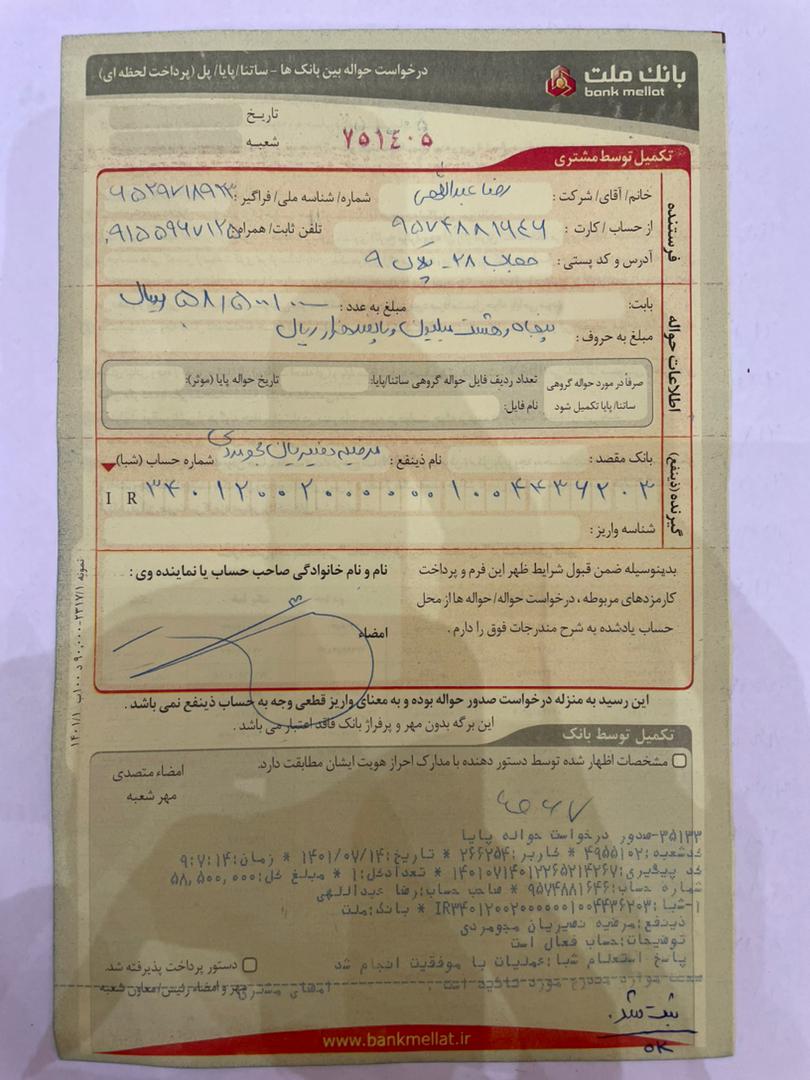 بانک ملت
bank mellat
درخواست حواله بین بانک ها - ساتنا/پایا/ پل (پرداخت لحظه ای)
تاریخ
شعبه
۷۵۱۴۰۵
تکمیل توسط مشتری
فرستنده
خانم/ آقای/ شرکت : رضا عبداللهی شماره/ شناسه ملی/ فراگیر :
از حساب / کارت : ۹۵۷۴۸۸۱۶۴۶ تلفن ثابت/ همراه:
آدرس و کد پستی : حجاب ۲۸ - پلاک ۹
اطلاعات حواله
بابت: مبلغ به عدد : ۵۸/۵۰۰/۰۰۰ ریال
مبلغ به حروف : پنجاه و هشت میلیون و پانصد هزار ریال
صرفاً در مورد حواله گروهی ساتنا/ پایا تکمیل شود
تعداد ردیف فایل حواله گروهی ساتنا/پایا: تاریخ حواله پایا (موثر):
نام فایل:
گیرنده (ذینفع)
بانک مقصد : نام ذینفع : شماره حساب (شبا)
I R ۳۴۰۱۲۰۰۲۰۰۰۰۰۰۱۰۰۴۴۳۶۲۰۳
شناسه واریز :
بدینوسیله ضمن قبول شرایط ظهر این فرم و پرداخت
کارمزدهای مربوطه ، درخواست حواله/ حواله ها از محل
حساب یادشده به شرح مندرجات فوق را دارم .
نام و نام خانوادگی صاحب حساب یا نماینده وی :
امضاء
این رسید به منزله درخواست صدور حواله بوده و به معنای واریز قطعی وجه به حساب ذینفع نمی باشد .
این برگه بدون مهر و پرفراژ بانک فاقد اعتبار می باشد .
تکمیل توسط بانک
مشخصات اظهار شده توسط دستور دهنده با مدارک احراز هویت ایشان مطابقت دارد.
امضاء متصدی
مهر شعبه
۳۵۱۳۳-صدور درخواست حواله پایا
کدشعبه:۴۹۵۵۱۰۲ * کاربر:۲۶۶۲۵۴ * تاریخ:۱۴۰۱/۰۷/۱۴ * زمان:۹:۷:۱۴
کد پیگیری:۱۴۰۱۰۷۱۴۰۱۲۲۶۵۲۱۴۲۶۷ * تعدادکل:۱ * مبلغ کل:۵۸,۵۰۰,۰۰۰
شماره حساب:۹۵۷۴۸۸۱۶۴۶ * صاحب حساب:رضا عبداللهی
۱-شبا:IR۳۴۰۱۲۰۰۲۰۰۰۰۰۰۱۰۰۴۴۳۶۲۰۳ * بانک:ملت
ذینفع:مرضیه نصیریان مجومردی
توضیحات:حساب فعال است
پاسخ استعلام شبا:عملیات با موفقیت انجام شد
دستور پرداخت پذیرفته شد.
مهر و امضاء رئیس/ معاون شعبه
ثبت شد.
OK
www.bankmellat.ir